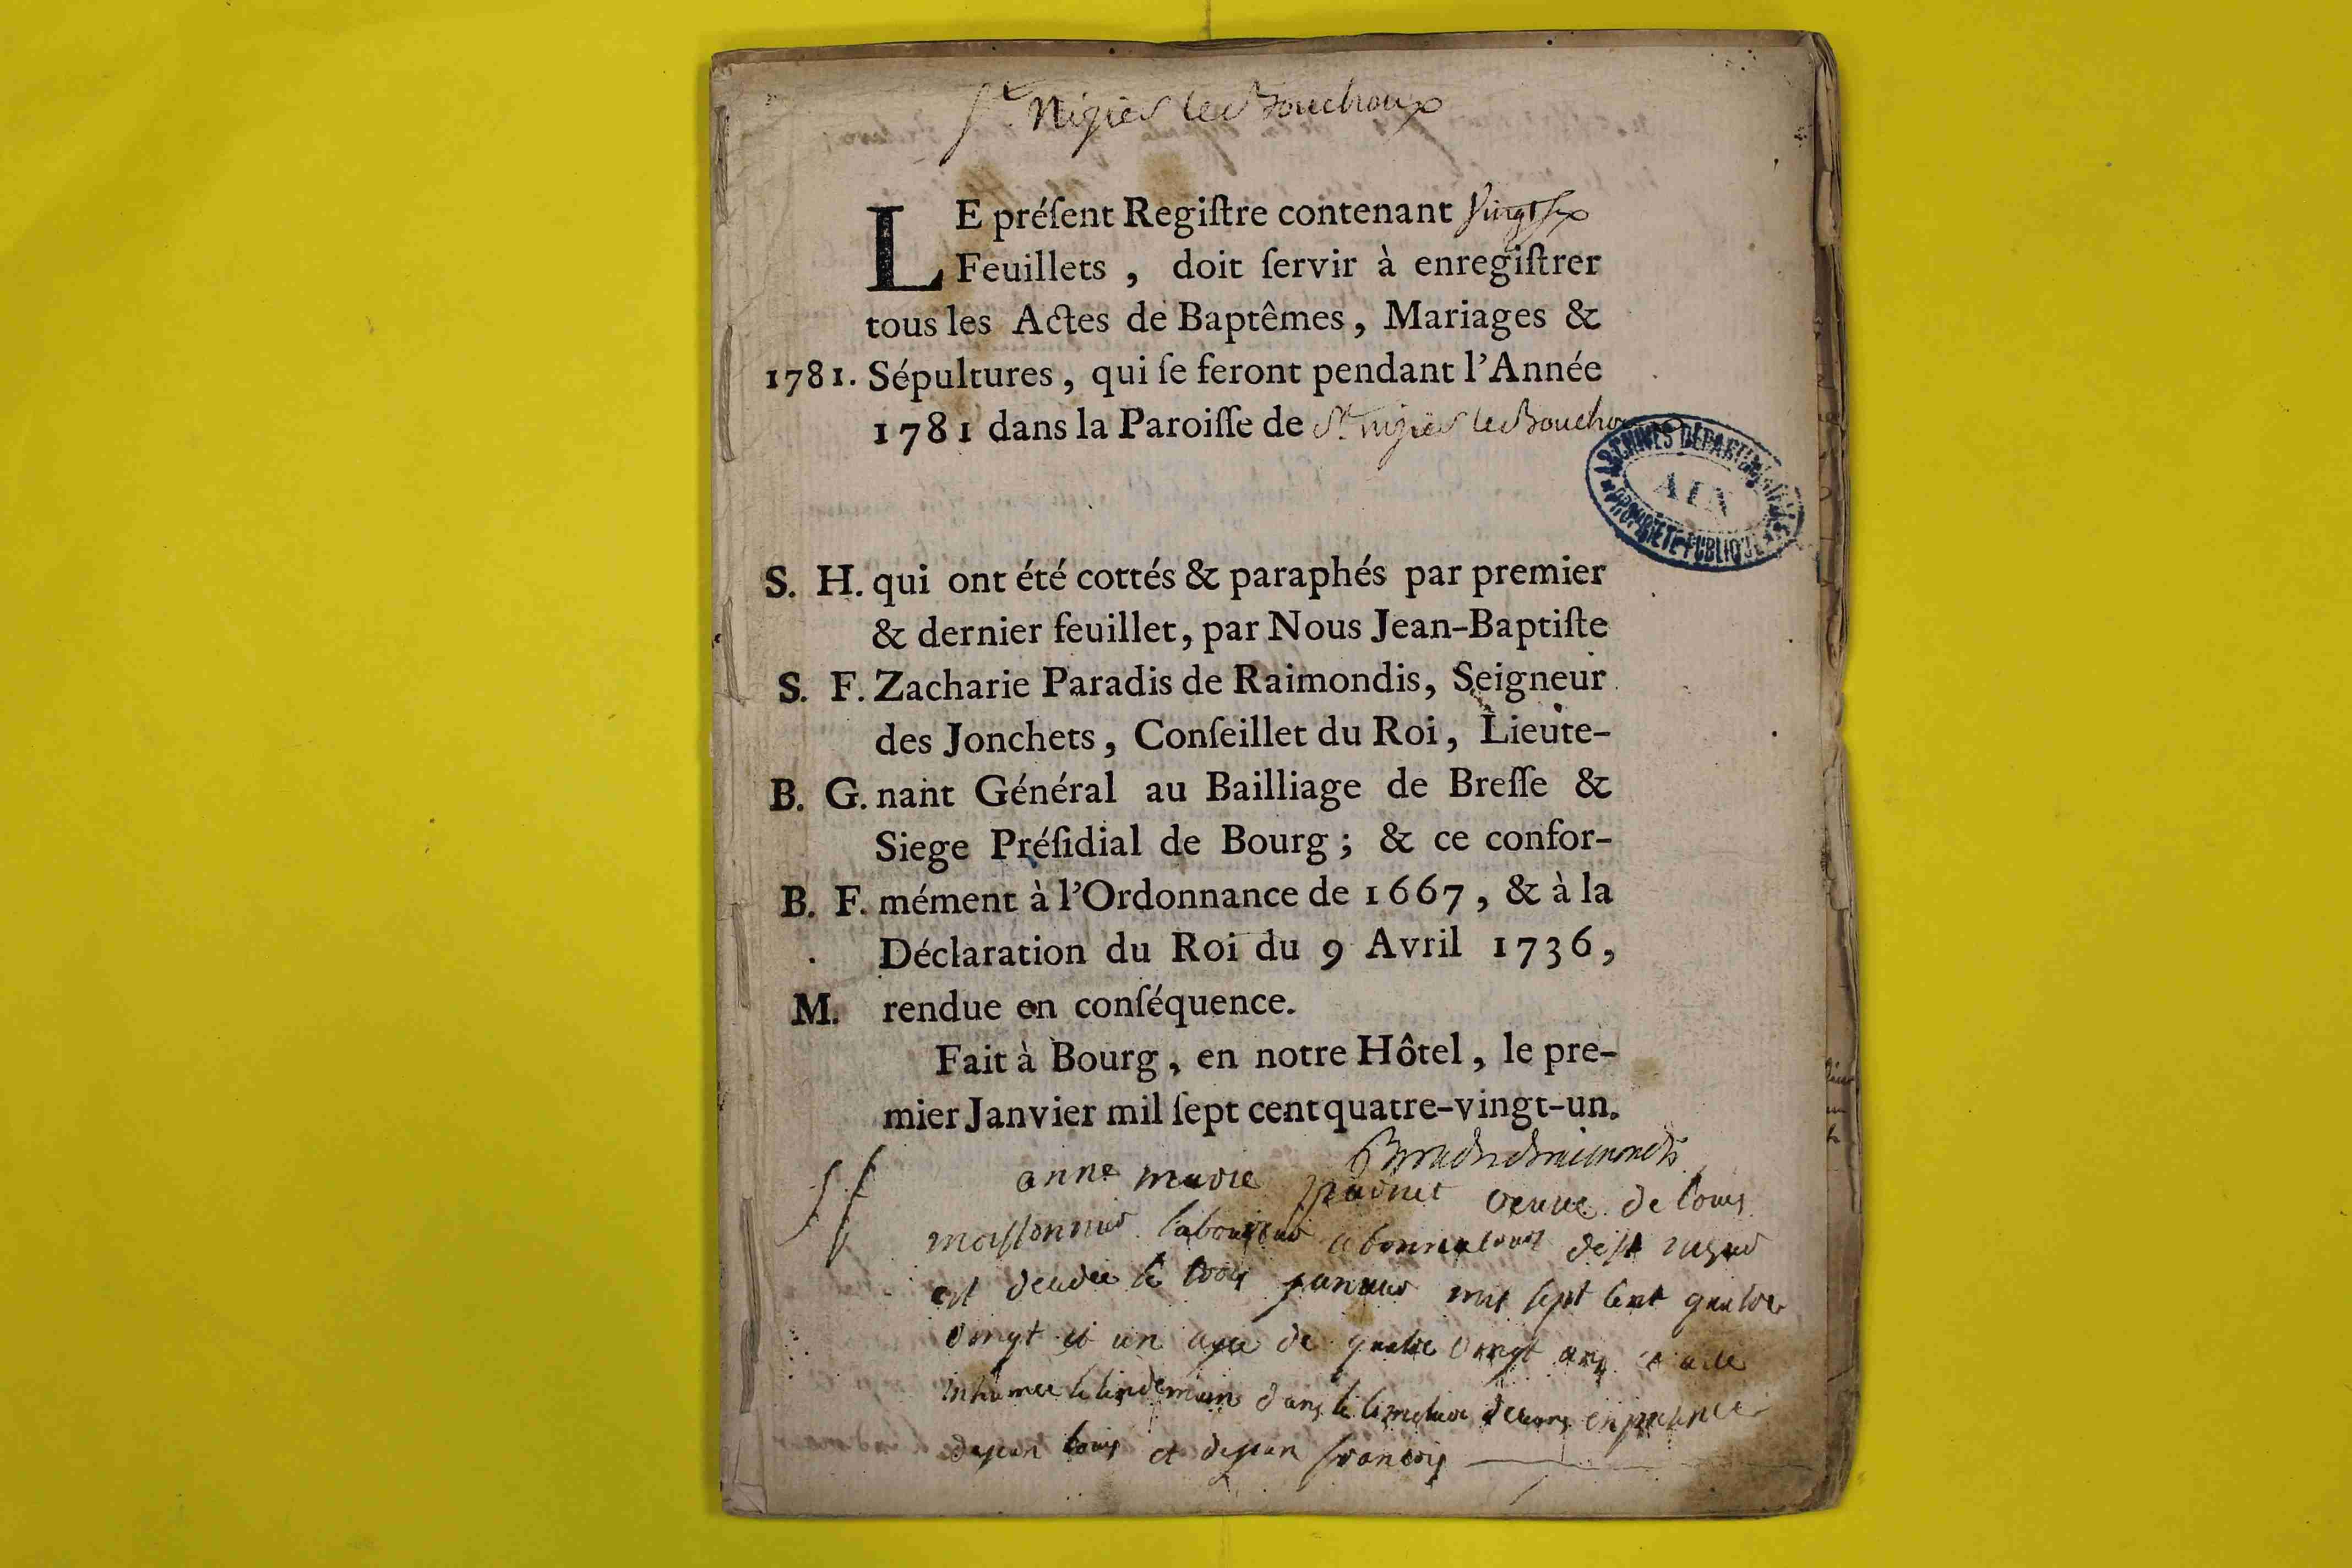 St. Nizier le Bouchoux
LE préſent Regiſtre contenant Vingt ſix
Feuillets , doit ſervir à enregiſtrer
tous les Actes de Baptêmes, Mariages &
1781. Sépultures, qui ſe feront pendant l'Année
1781 dans la Paroiſſe de St. nizier le Bouchoux
ARCHIVES DÉPARTEMENTALES
AIN
PROPRIÉTÉ PUBLIQUE
S. H. qui ont été cottés & paraphés par premier
& dernier feuillet, par Nous Jean-Baptiſte
S. F. Zacharie Paradis de Raimondis, Seigneur
des Jonchets, Conſeillet du Roi, Lieute-
B. G. nant Général au Bailliage de Breſſe &
Siege Préſidial de Bourg; & ce confor-
B. F. mément à l'Ordonnance de 1667, & à la
Déclaration du Roi du 9 Avril 1736,
M. rendue en conſéquence.
Fait à Bourg, en notre Hôtel, le pre-
mier Janvier mil ſept cent quatre-vingt-un.
Paradis de Raimondis
anne marie veuve de louis
laboureur de st nizier
est le trois janvier mil sept cent quatre
vingt et un agee de quatre vingt ans et a ete
inhumee le lendemain dans le cimetiere en presence
de jean louis et de jean francois